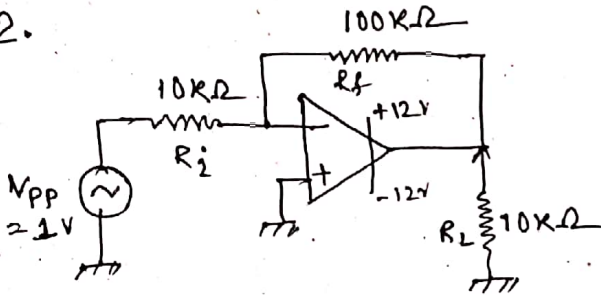 2.
100KΩ
Rf
10KΩ
Ri
+12V
-
+
-12V
VPP
=1V
RL
10KΩ